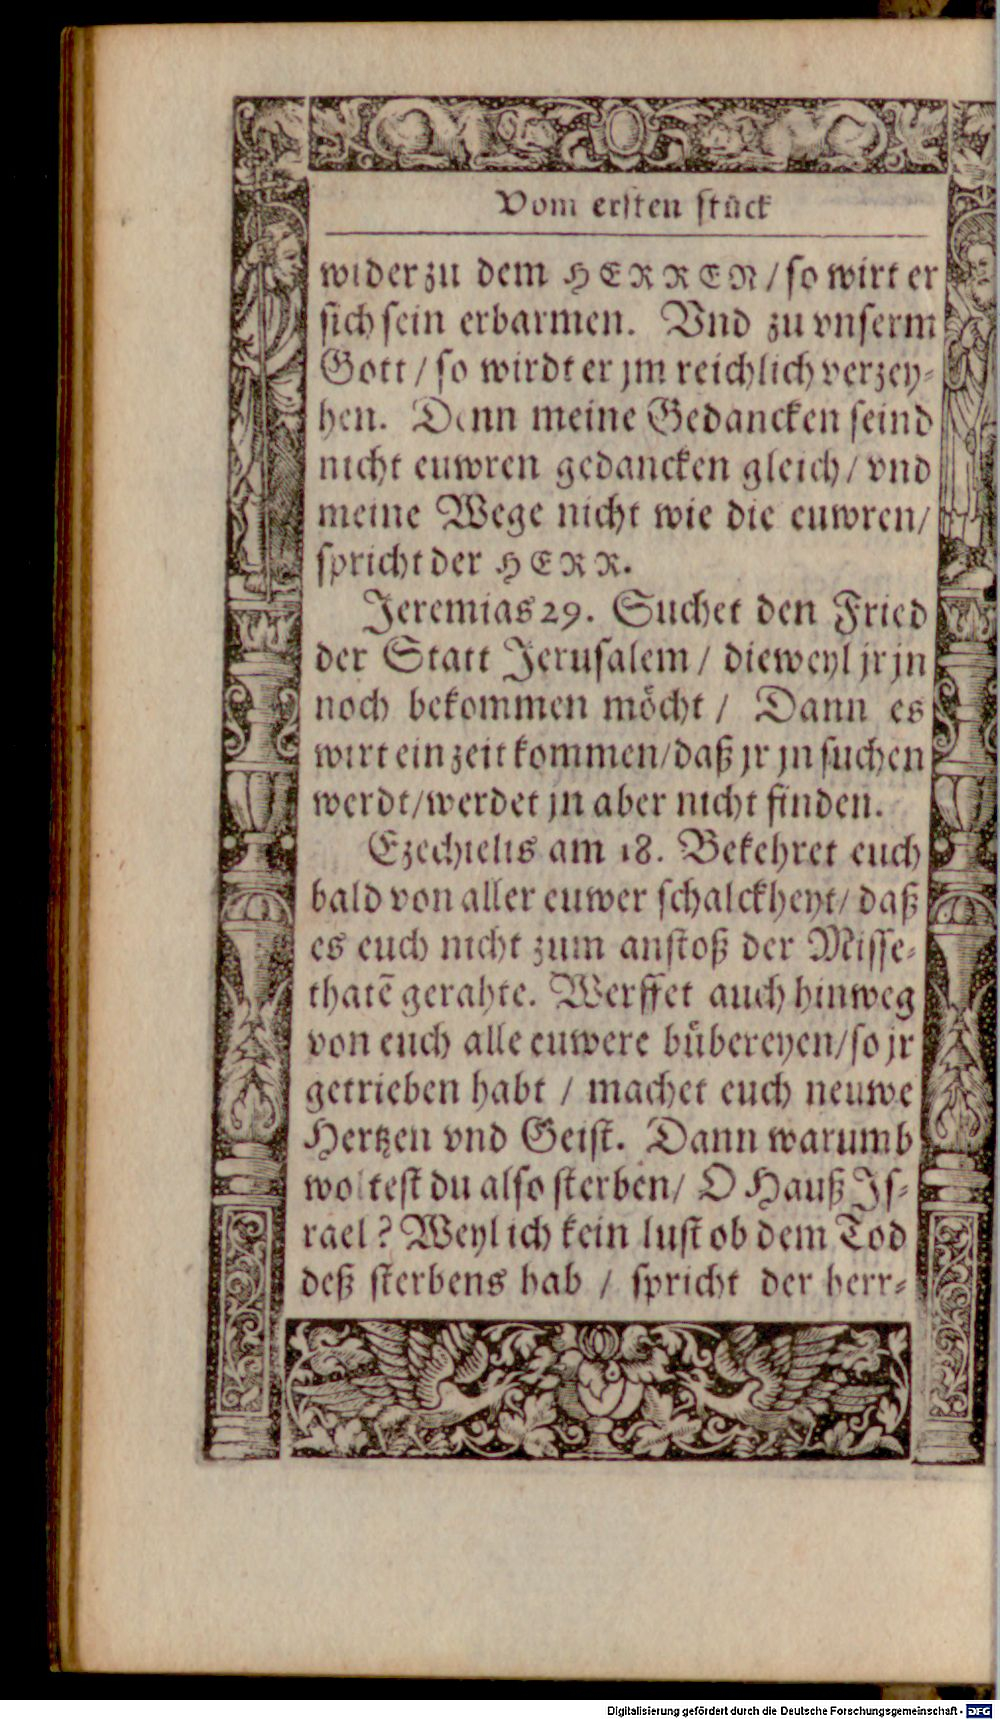 Vom ersten stück
wider zu dem HERREN / so wirt er
sich sein erbarmen. Vnd zu vnserm
Gott / so wirdt er jm reichlich verzey-
hen. Denn meine Gedancken seind
nicht euwren gedancken gleich / vnd
meine Wege nicht wie die euwren /
spricht der HERR.
Jeremias 29. Suchet den Fried
der Statt Jerusalem / dieweyl jr jn
noch bekommen möcht / Dann es
wirt ein zeit kommen / daß jr jn suchen
werdt / werdet jn aber nicht finden.
Ezechielis am 18. Bekehret euch
bald von aller euwer schalckheyt / daß
es euch nicht zum anstoß der Misse-
thatē gerahte. Werffet auch hinweg
von euch alle euwere bübereyen / so jr
getrieben habt / machet euch neuwe
Hertzen vnd Geist. Dann warumb
woltest du also sterben / O Hauß Is-
rael? Weyl ich kein lust ob dem Tod
deß sterbens hab / spricht der herr-
Digitalisierung gefördert durch die Deutsche Forschungsgemeinschaft - DFG